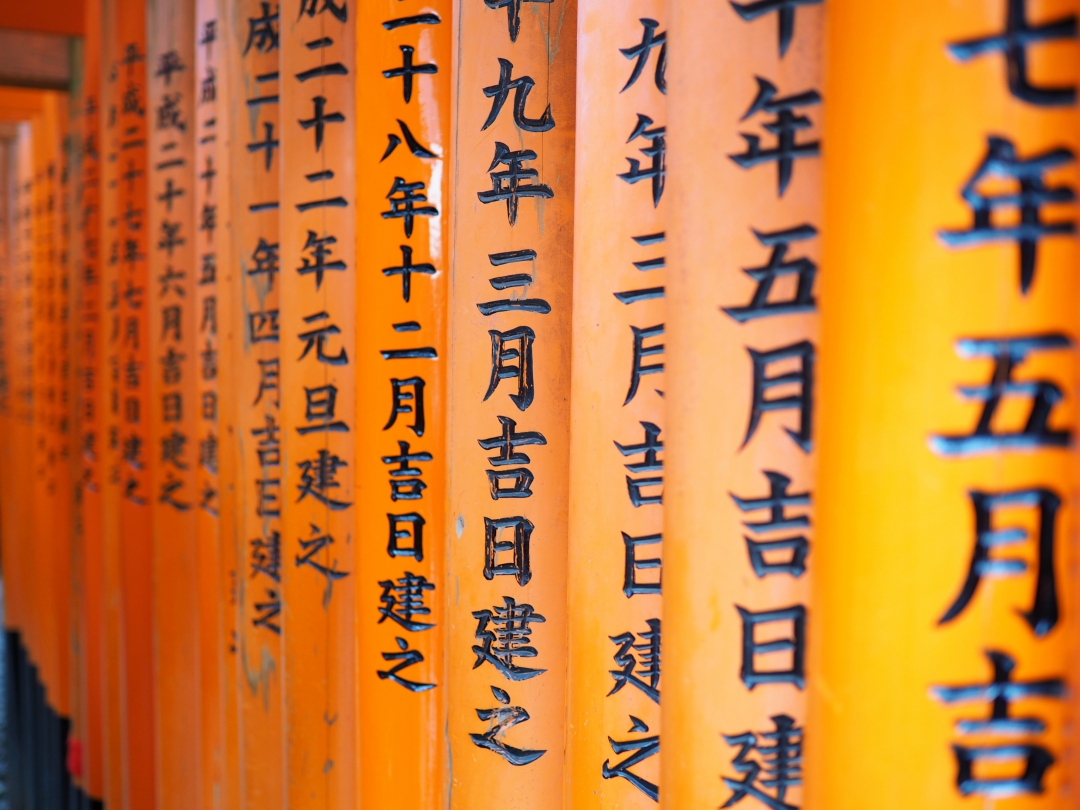 七年五月吉
十年五月吉日建
九年三月吉日建之
十九年三月吉日建之
二十八年十二月吉日建之
成二十二年元旦建之
成二十一年四月吉日建之
平成二十年五月吉日建之
平成二十年六月吉日建之
平成二十七年七月吉日建之